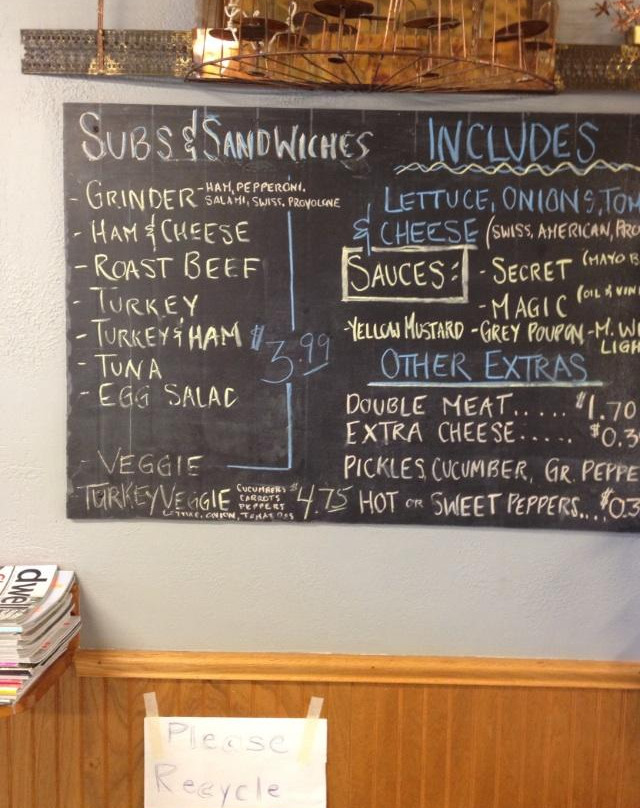 SUBS & SANDWICHES
- GRINDER - HAM, PEPPERONI,
SALAMI, SWISS, PROVOLONE
- HAM & CHEESE
- ROAST BEEF
- TURKEY
- TURKEY & HAM $3.99
- TUNA
- EGG SALAD
- VEGGIE
TURKEY VEGGIE CUCUMBERS $4.75
CARROTS
PEPPERS
LETTUCE, ONION, TOMATOES
INCLUDES
LETTUCE, ONIONS, TOM
& CHEESE (SWISS, AMERICAN, PRO
SAUCES: - SECRET (MAYO B
- MAGIC (OIL & VIN
- YELLOW MUSTARD - GREY POUPON - M. W
LIGH
OTHER EXTRAS
DOUBLE MEAT..... $1.70
EXTRA CHEESE..... $0.3
PICKLES, CUCUMBER, GR. PEPPE
HOT OR SWEET PEPPERS... $0.3
dwel
Please
Recycle